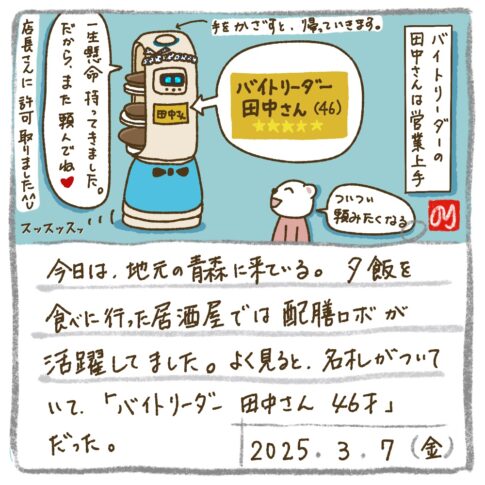 バイトリーダーの
田中さんは営業上手
手をかざすと、帰っていきます。
一生懸命 持ってきました。
だから、また頼んでね♥
店長さんに許可取りました^^
田中さん
バイトリーダー
田中さん (46)
★★★★★
ついつい
頼みたくなる
スッスッスッ
今日は、地元の青森に来ている。夕飯を
食べに行った居酒屋では配膳ロボが
活躍してました。よく見ると、名札がついて
いて、「バイトリーダー 田中さん 46才」
だった。
2025.3.7(金)